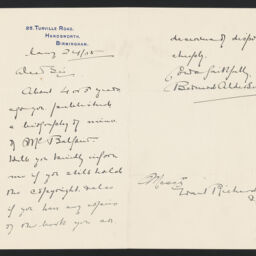 25. TURVILLE ROAD.
HANDSWORTH.
BIRMINGHAM.
Dear Sir
About 4 or 5 years
ago you published
a biography of mine
of Mr Balfour.
Will you kindly inform
me if you still hold
the copyright. Also
if you have any copies
of the book you are
desirous of
cheaply.
Yours faithfully,
Bernard Alderson
Messrs
Grant Richards